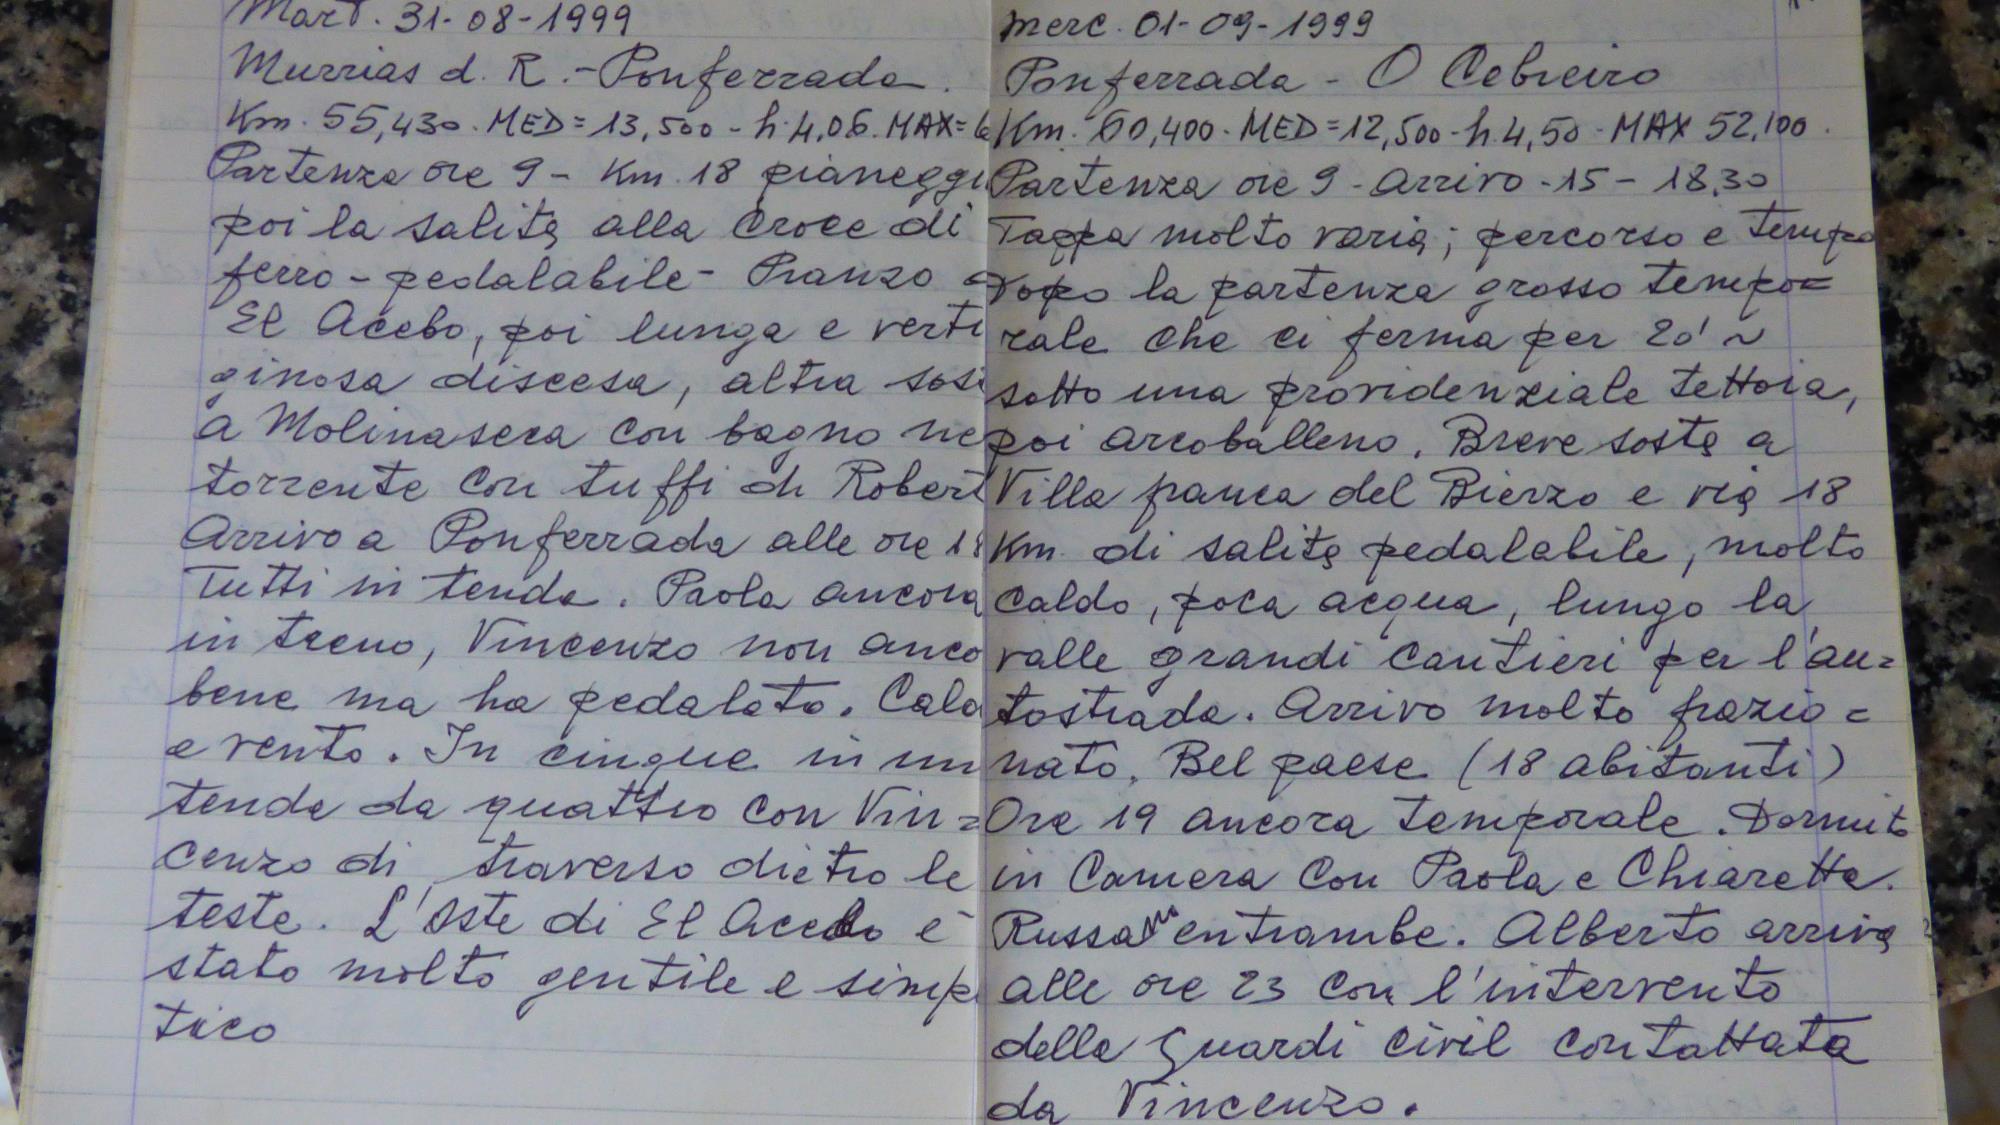 Mart. 31-08-1999
Murrias d. R. - Ponferrada.
Km. 55,430 - MED = 13,500 - h. 4,06. MAX = 6
Partenza ore 9 - Km. 18 pianeggi
poi la salita alla Croce di
ferro - pedalabile - Pranzo a
El Acebo, poi lunga e verti
ginosa discesa, altra sosi
a Molinaseca con bagno ne
torrente con tuffi di Robert
Arrivo a Ponferrada alle ore 18
Tutti in tenda. Paola ancora
in treno, Vincenzo non anco
bene ma ha pedalato. Caldo
e vento. In cinque in un
tenda da quattro con Vin=
cenzo di traverso dietro le
teste. L'Oste di El Acebo è
stato molto gentile e simp
tico
merc. 01-09-1999
Ponferrada - O Cebreiro
Km. 60,400 - MED = 12,500 - h. 4,50 - MAX 52,100.
Partenza ore 9 - arrivo - 15 - 18,30
Tappa molto varia; percorso e tempo
Dopo la partenza grosso tempo=
rale che ci ferma per 20' ~
sotto una providenziale tettoia,
poi arcoballeno. Breve sosta a
Villa franca del Bierzo e via 18
Km di salita pedalabile, molto
caldo, poca acqua, lungo la
valle grandi cantieri per l'au=
tostrada. Arrivo molto frazio=
nato. Bel paese (18 abitanti)
Ore 19 ancora temporale. Dormito
in Camera con Paola e Chiaretta.
Russano entrambe. Alberto arriva
alle ore 23 con l'intervento
della guardi civil contattata
da Vincenzo.